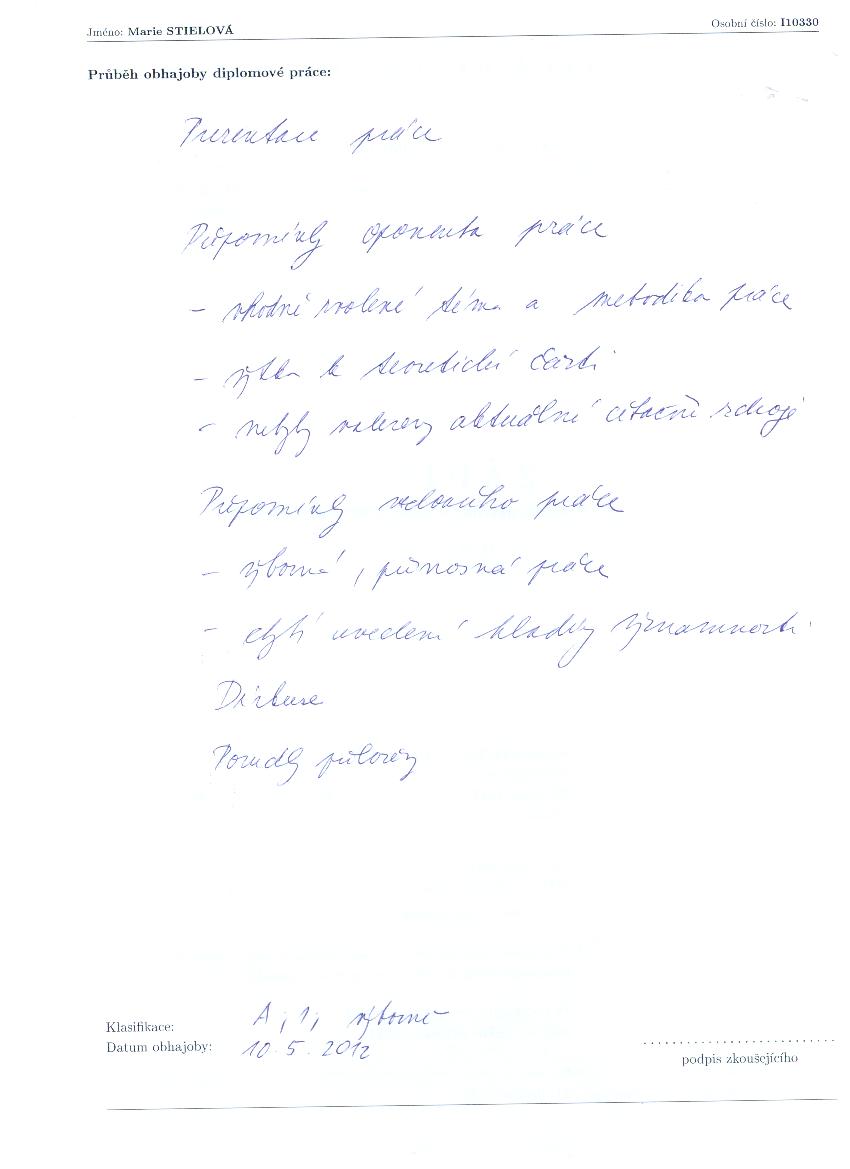 Jméno: Marie STIELOVÁ Osobní číslo: I10330
Průběh obhajoby diplomové práce:
Prezentace práce
Připomínky oponenta práce
- vhodně zvolené téma a metodika práce
- výtka k teoretické části
- nebyly nalezeny aktuální citační zdroje
Připomínky vedoucího práce
- výborná, přínosná práce
- chybí uvedení hladiny významnosti
Diskuse
Posudky přiloženy
Klasifikace: A, 1, výborně
Datum obhajoby: 10. 5. 2012
podpis zkoušejícího